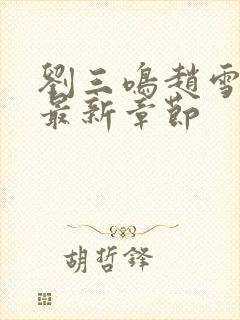 劉三鳴趙雪
最新章節
胡哲鋒